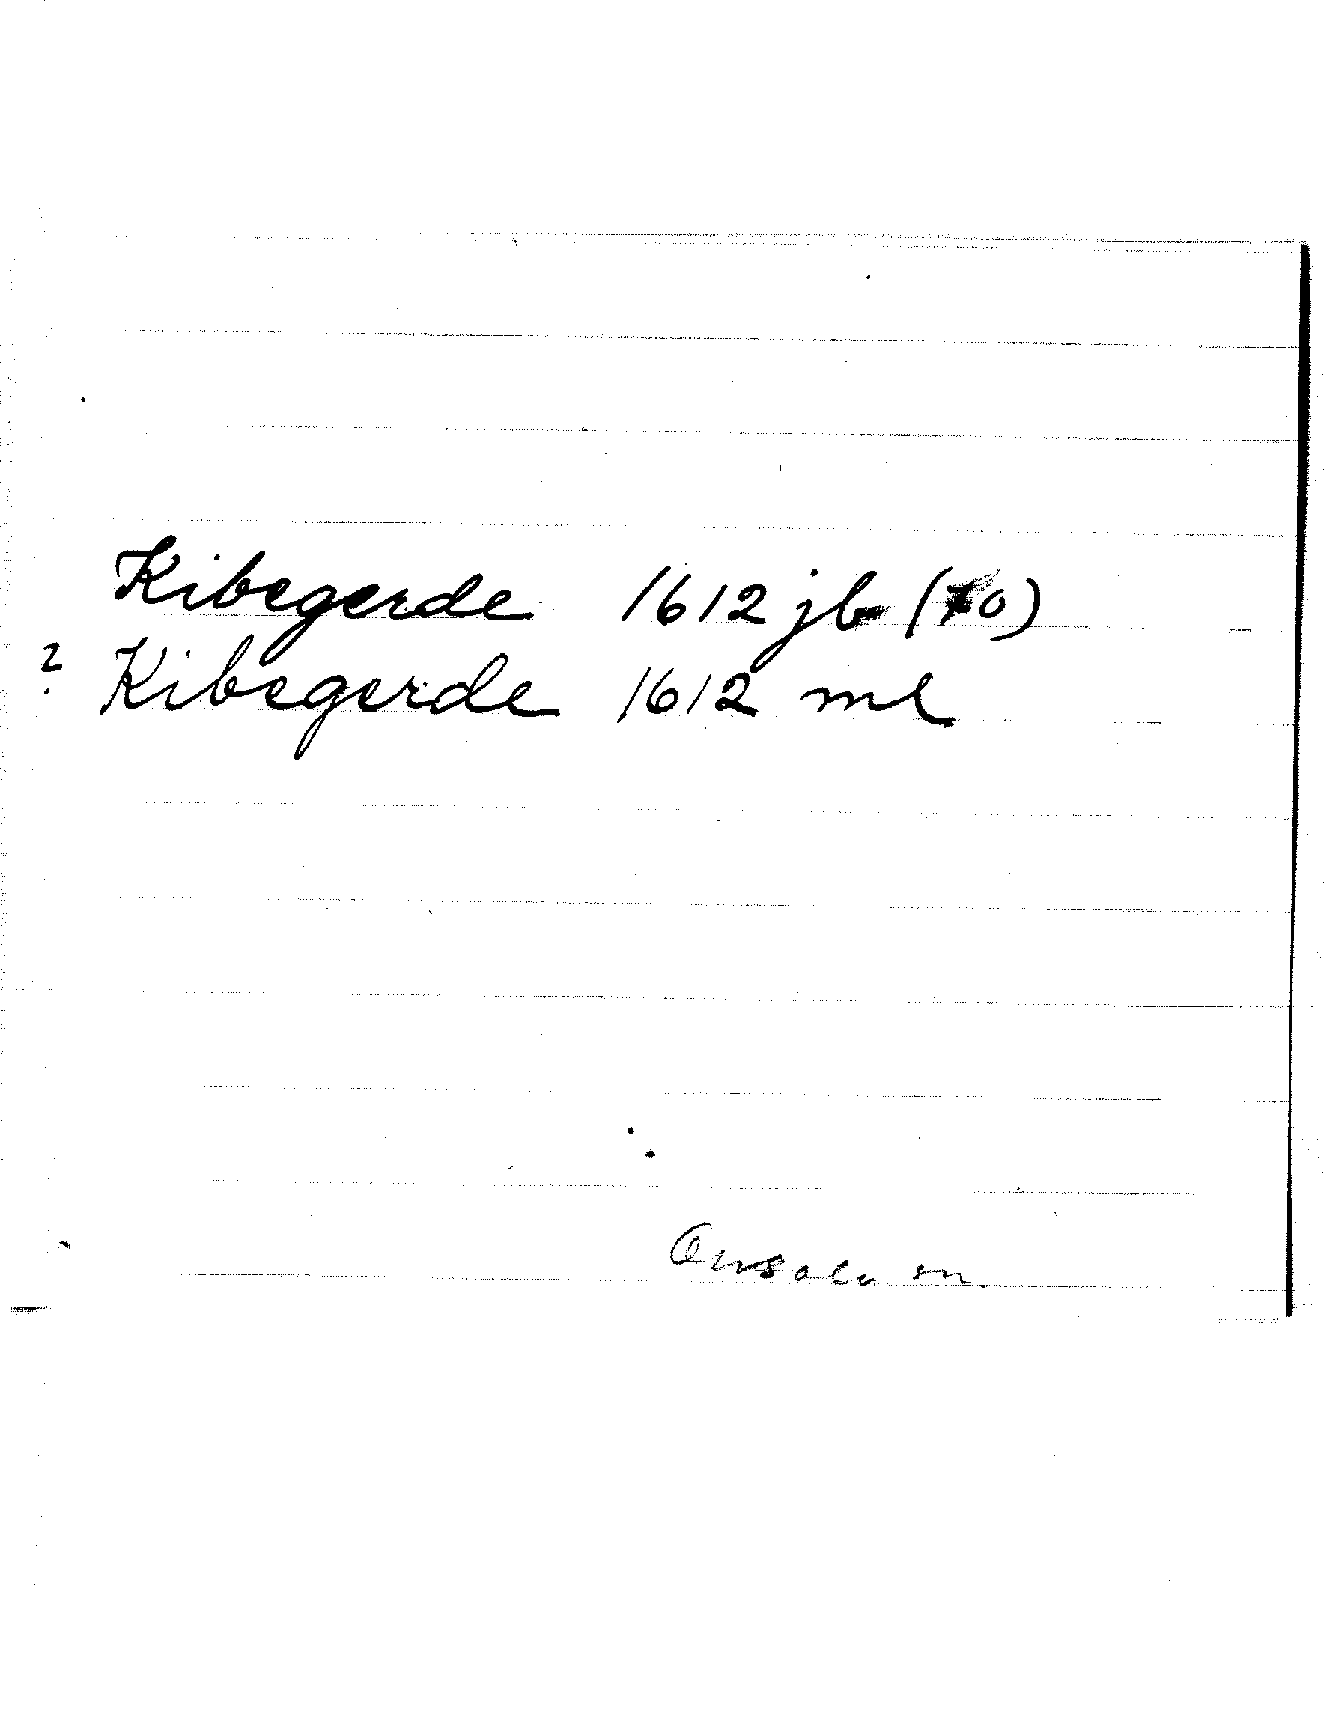 Kibegerde 1612 jb (to)
? Kibegerde 1612 ml
Onsala sn